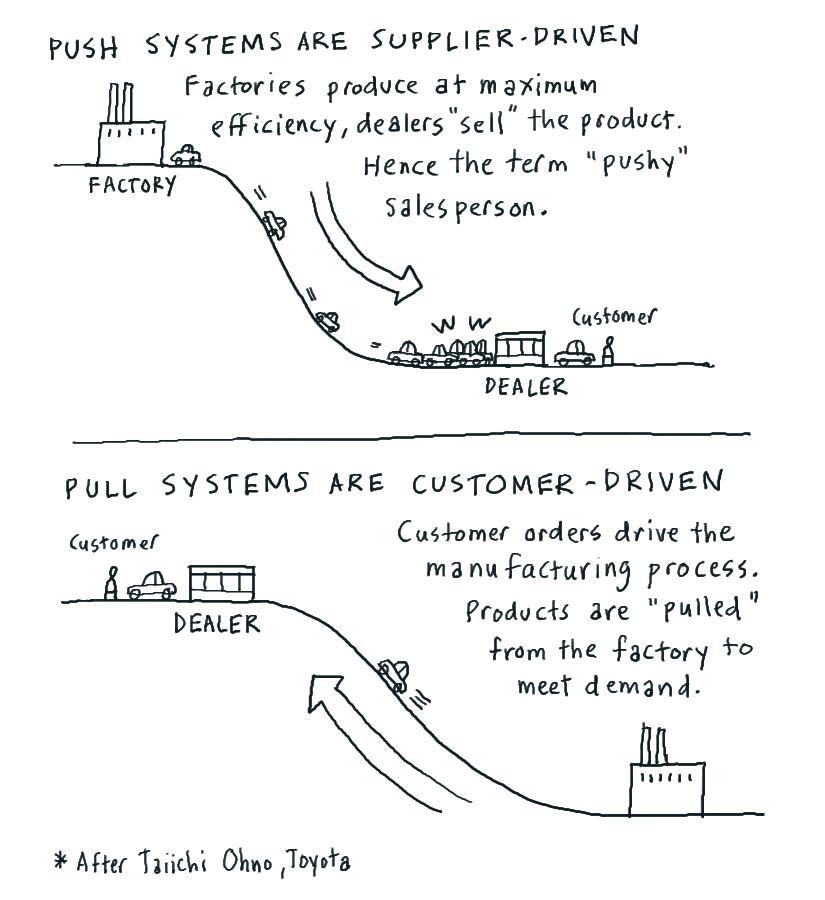 PUSH SYSTEMS ARE SUPPLIER-DRIVEN
Factories produce at maximum
efficiency, dealers "sell" the product.
Hence the term "pushy"
salesperson.
FACTORY
Customer
DEALER
PULL SYSTEMS ARE CUSTOMER-DRIVEN
Customer
Customer orders drive the
manufacturing process.
Products are "pulled"
from the factory to
meet demand.
DEALER
* After Taiichi Ohno, Toyota